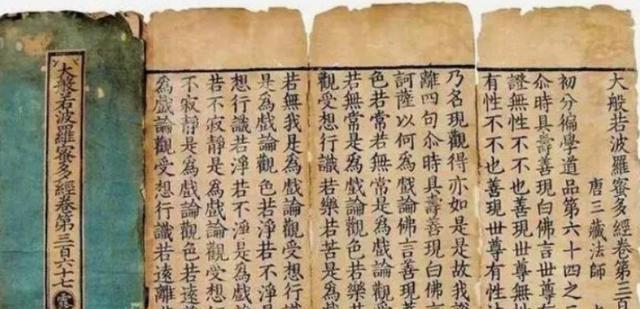 大般若波羅蜜多經卷第三百
唐三藏法師
初分徧學道品第六十四之
尒時具壽善現白佛言世尊
證無性不不也善現世尊無
有性不不也善現世尊有性
乃名現觀得亦如是是故我說
離四句尒時具壽善現白佛言
訶薩以何爲戲論佛言善現
色若常若無常是爲戲論觀
若無常是爲戲論觀色若樂
觀受想行識若樂若苦是
若無我是爲戲論觀受想
是爲戲論觀色若淨若不淨
想行識若淨若不淨是爲
若不寂靜是爲戲論觀色
不寂靜是爲戲論觀受想
爲戲論觀受想行識若遠離
大般若波羅蜜多經卷第三百六十七